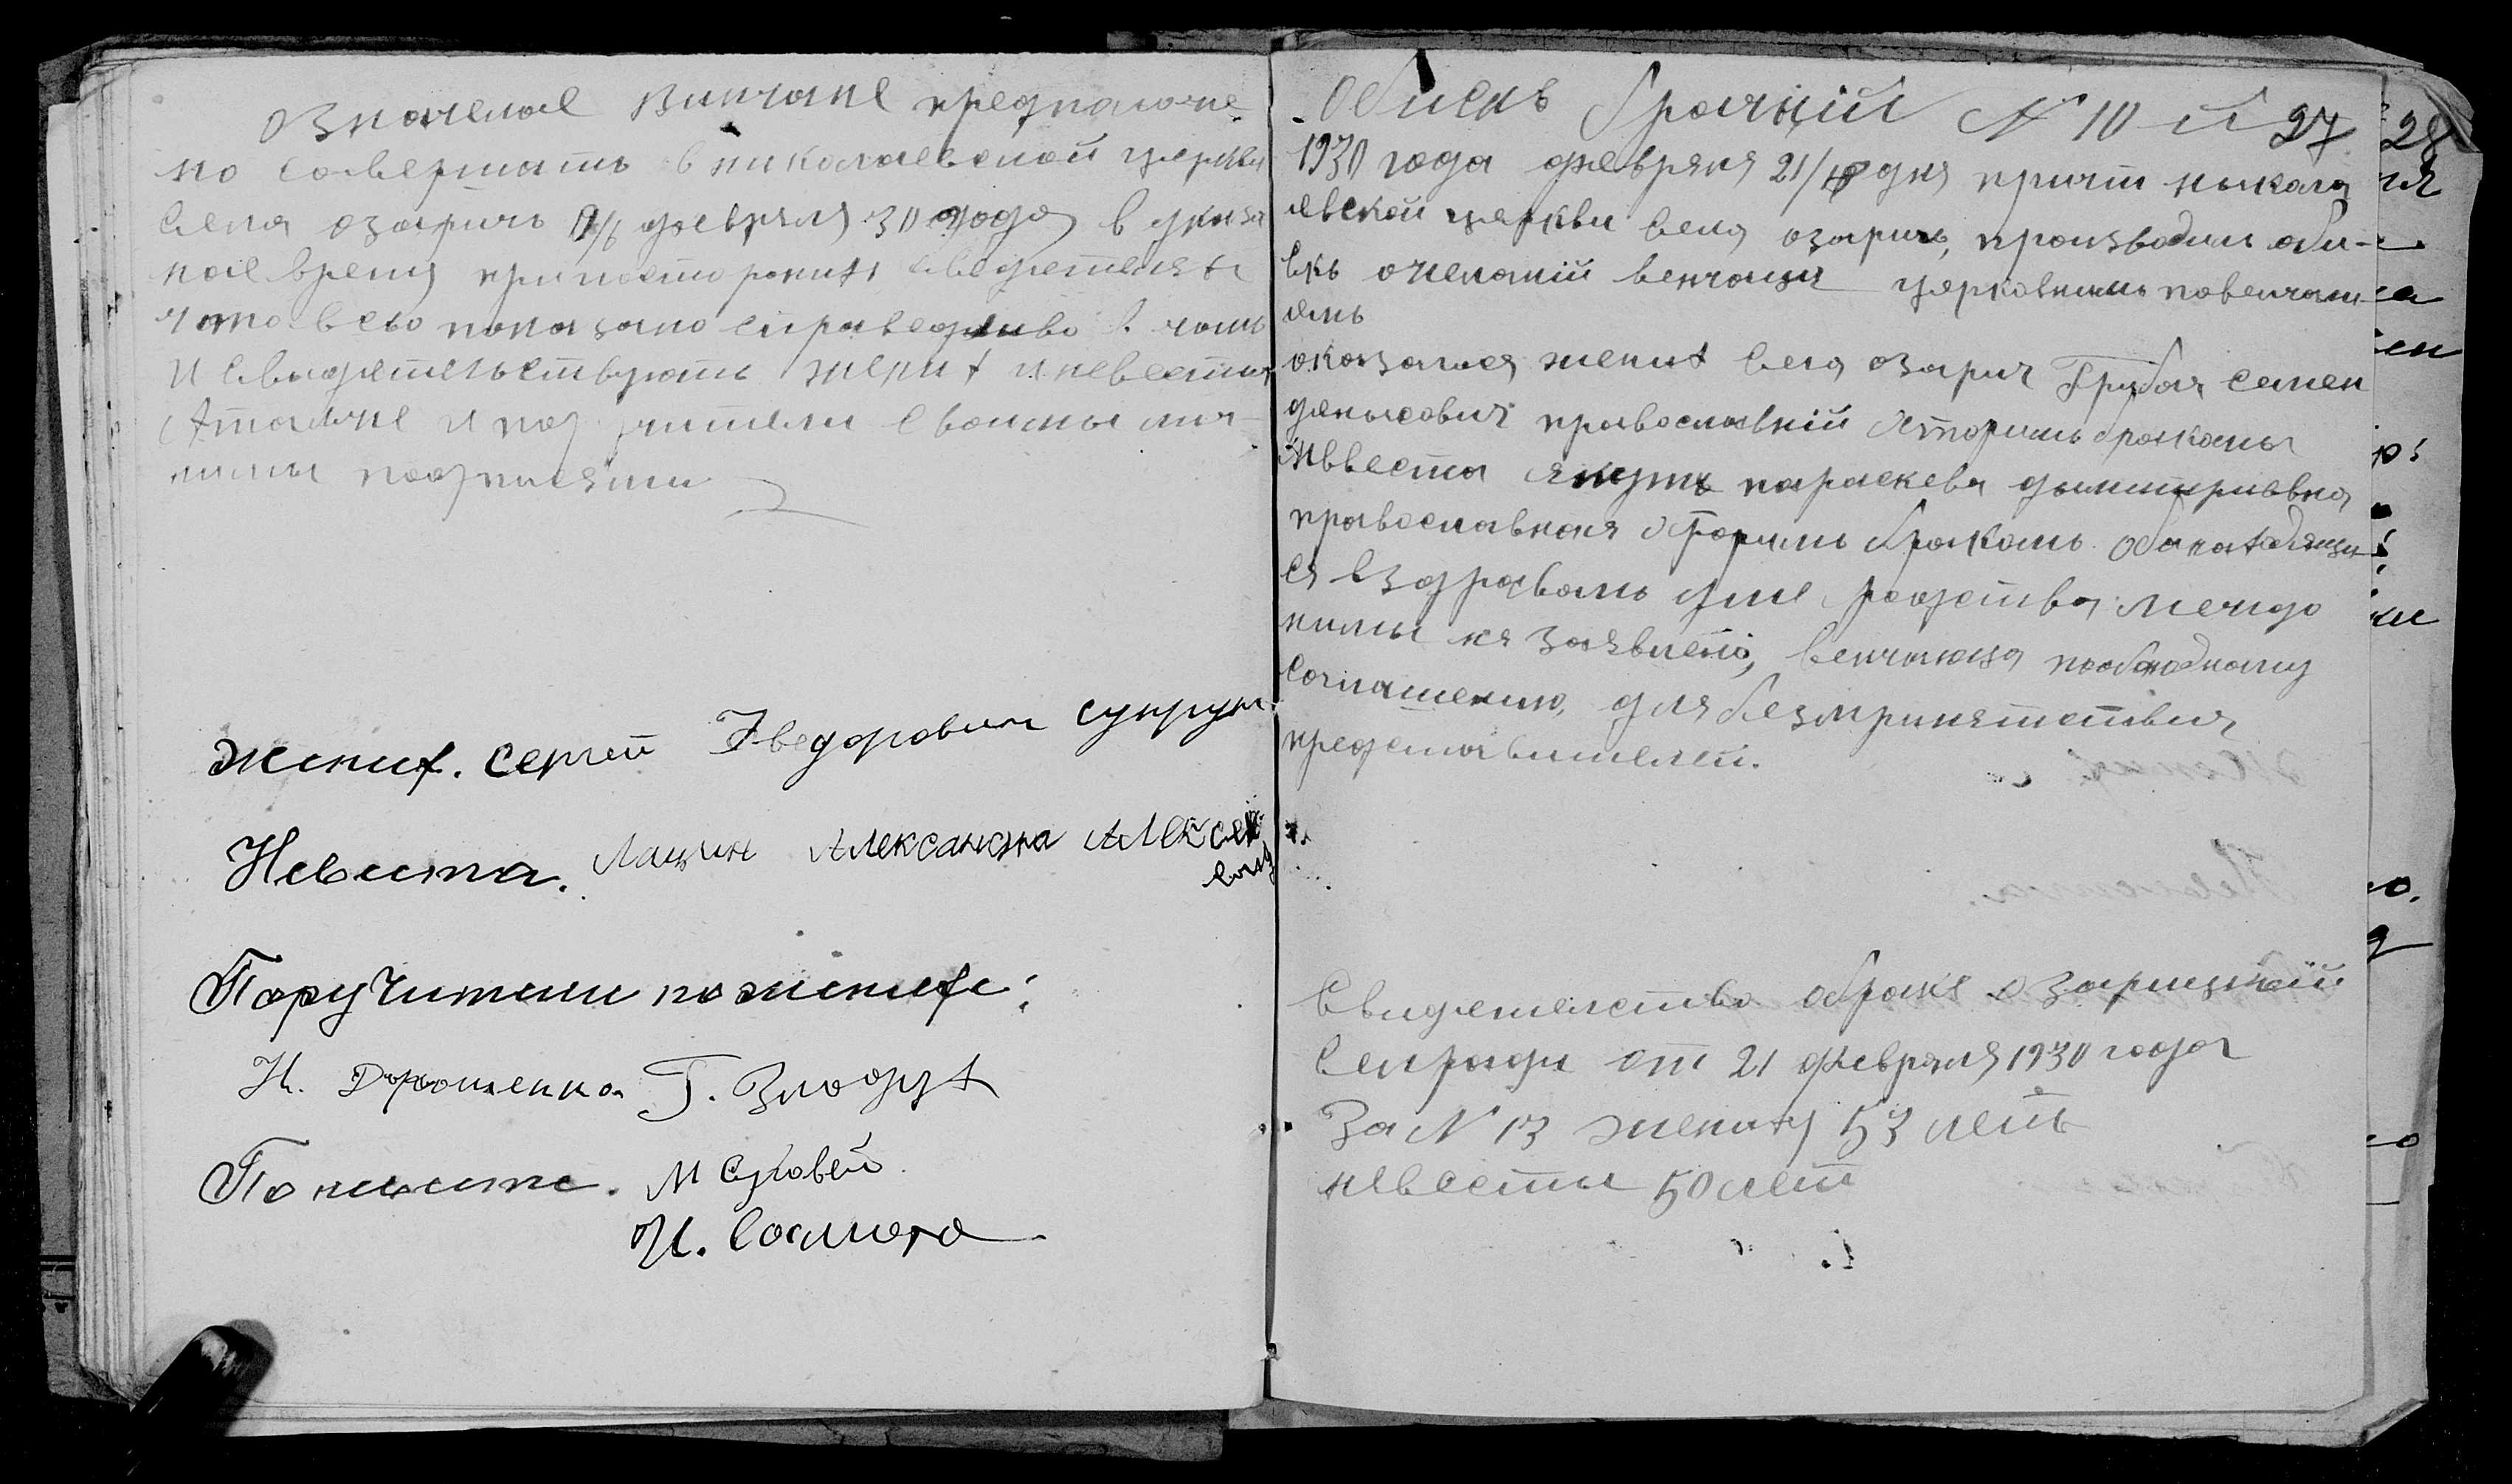 Означеное винчане предпаложе
но совершать в николаевской церкви
села озарич 19/6 февраля 30 года в указа
ное время припосторонихъ сведетелях
что всьо показано справедливо в чомъ
и свыдетельствують жених и невеста
Атакжне и пор учители своимы лич
нимы подписями
Жених. Сергей Фведоровичъ Супрун
Невеста. Лацин Александра Алексее
вна
Поручители по женихе:
Н. Дорошенко Г. Злодух
По невесте. М Суховей
И. Сосмога
Обискъ брачний № 10-й 27
1930 года февряля 21/ дня причт ныкола
евской церкви села озаричъ, производил оби-
скъ ожеланій венчаця церковнимъ повенчани
емъ
оказался жених села озарич Груба семен
денысович православній вторимъ бракомъ
Нввеста якуть параскева дымитриевна
православная вторимъ бракомъ. Оба находящи
ся вздравомъ уме родства междо
нимы не заявлено, венчаюця пообоюдному
согпашению, для безприпятствия
представителей.
Свидетелство обраке озарицкой
селради от 21 февраля 1930 года
За № 13 жениху 53 леть
невесты 50 лет
28